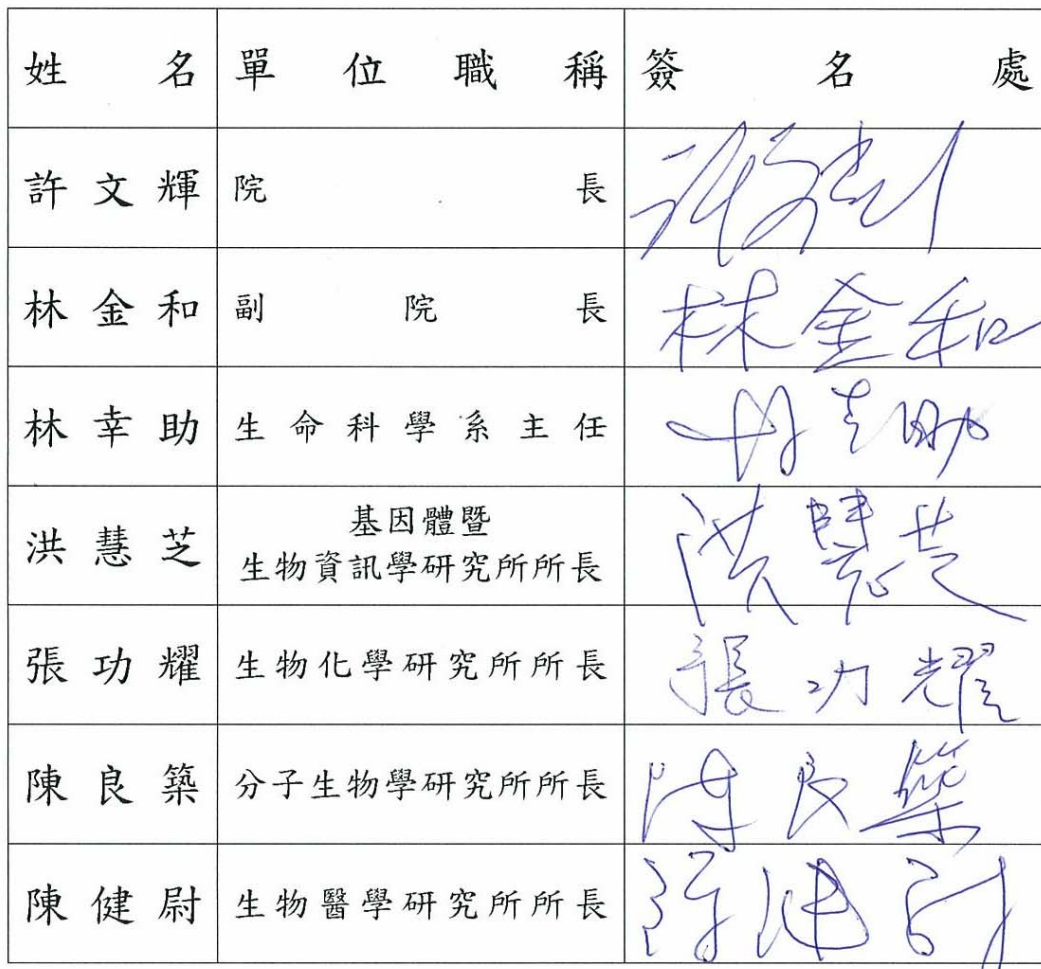 姓名 單位職稱 簽名處
許文輝 院長 許文輝
林金和 副院長 林金和
林幸助 生命科學系主任 林幸助
洪慧芝 基因體暨
生物資訊學研究所所長 洪慧芝
張功耀 生物化學研究所所長 張功耀
陳良築 分子生物學研究所所長 陳良築
陳健尉 生物醫學研究所所長 陳健尉